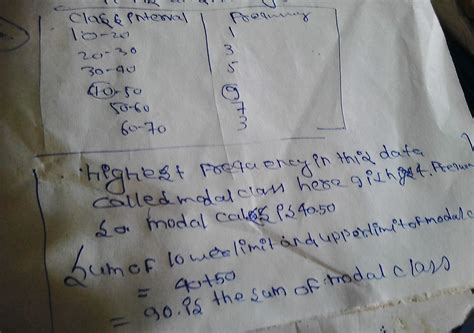 Class Interval Frequency
10-20 1
20-30 3
30-40 5
40-50 9
50-60 7
60-70 3
highest Frequency in this data
called modal class here 9 is highest.
So modal calss is 40.50
Sum of lower limit and upper limit of modal c
= 40+50
= 90. is the sum of modal class